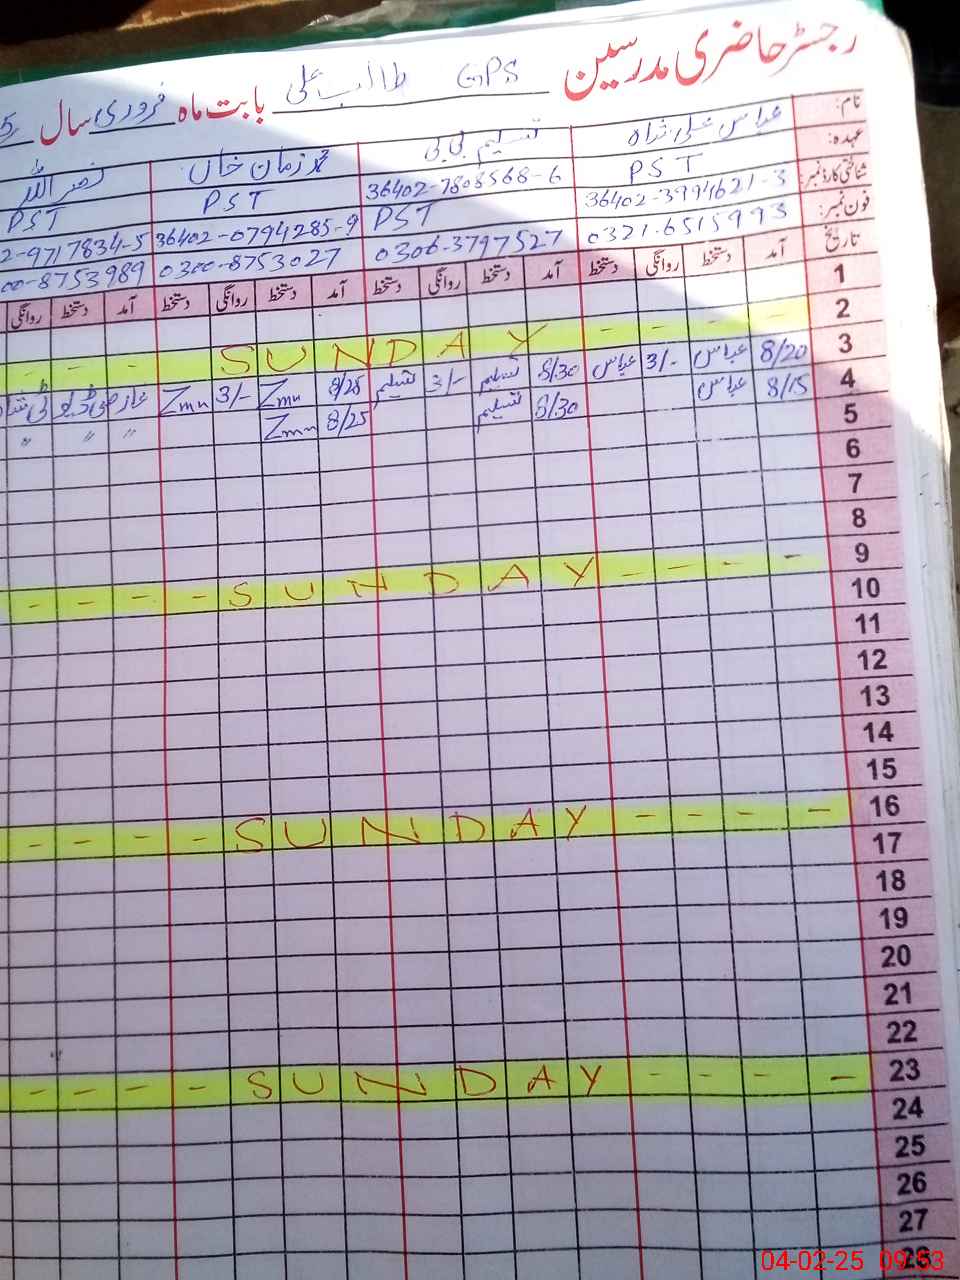 رجسٹر حاضری مدرسین GPS طالب علی بابت ماہ فروری سال
نام: عباس علی شاہ تسلیم بی بی محمد زمان خاں نصر اللہ
عہدہ: PST PST PST PST
شناختی کارڈ نمبر: 36402-3994621-3 36402-7808568-6 36402-0794285-9 2-9717834-5
فون نمبر: 0321-6515993 0306-3797527 0300-8753027 00-8753989
تاریخ آمد دستخط روانگی دستخط آمد دستخط روانگی دستخط آمد دستخط روانگی دستخط آمد دستخط روانگی
1
2 - - - - SUNDAY - - -
3 8/20 عباس 3/- عباس 8/30 تسلیم 3/- تسلیم 8/25 Zmn 3/- Zmn
4 8/15 عباس 8/30 تسلیم 8/25 Zmn " " "
5
6
7
8
9 - - - - SUNDAY - - - -
10
11
12
13
14
15
16 - - - - SUNDAY - - - -
17
18
19
20
21
22
23 - - - - SUNDAY - - - -
24
25
26
27
28
04-02-25 09:53